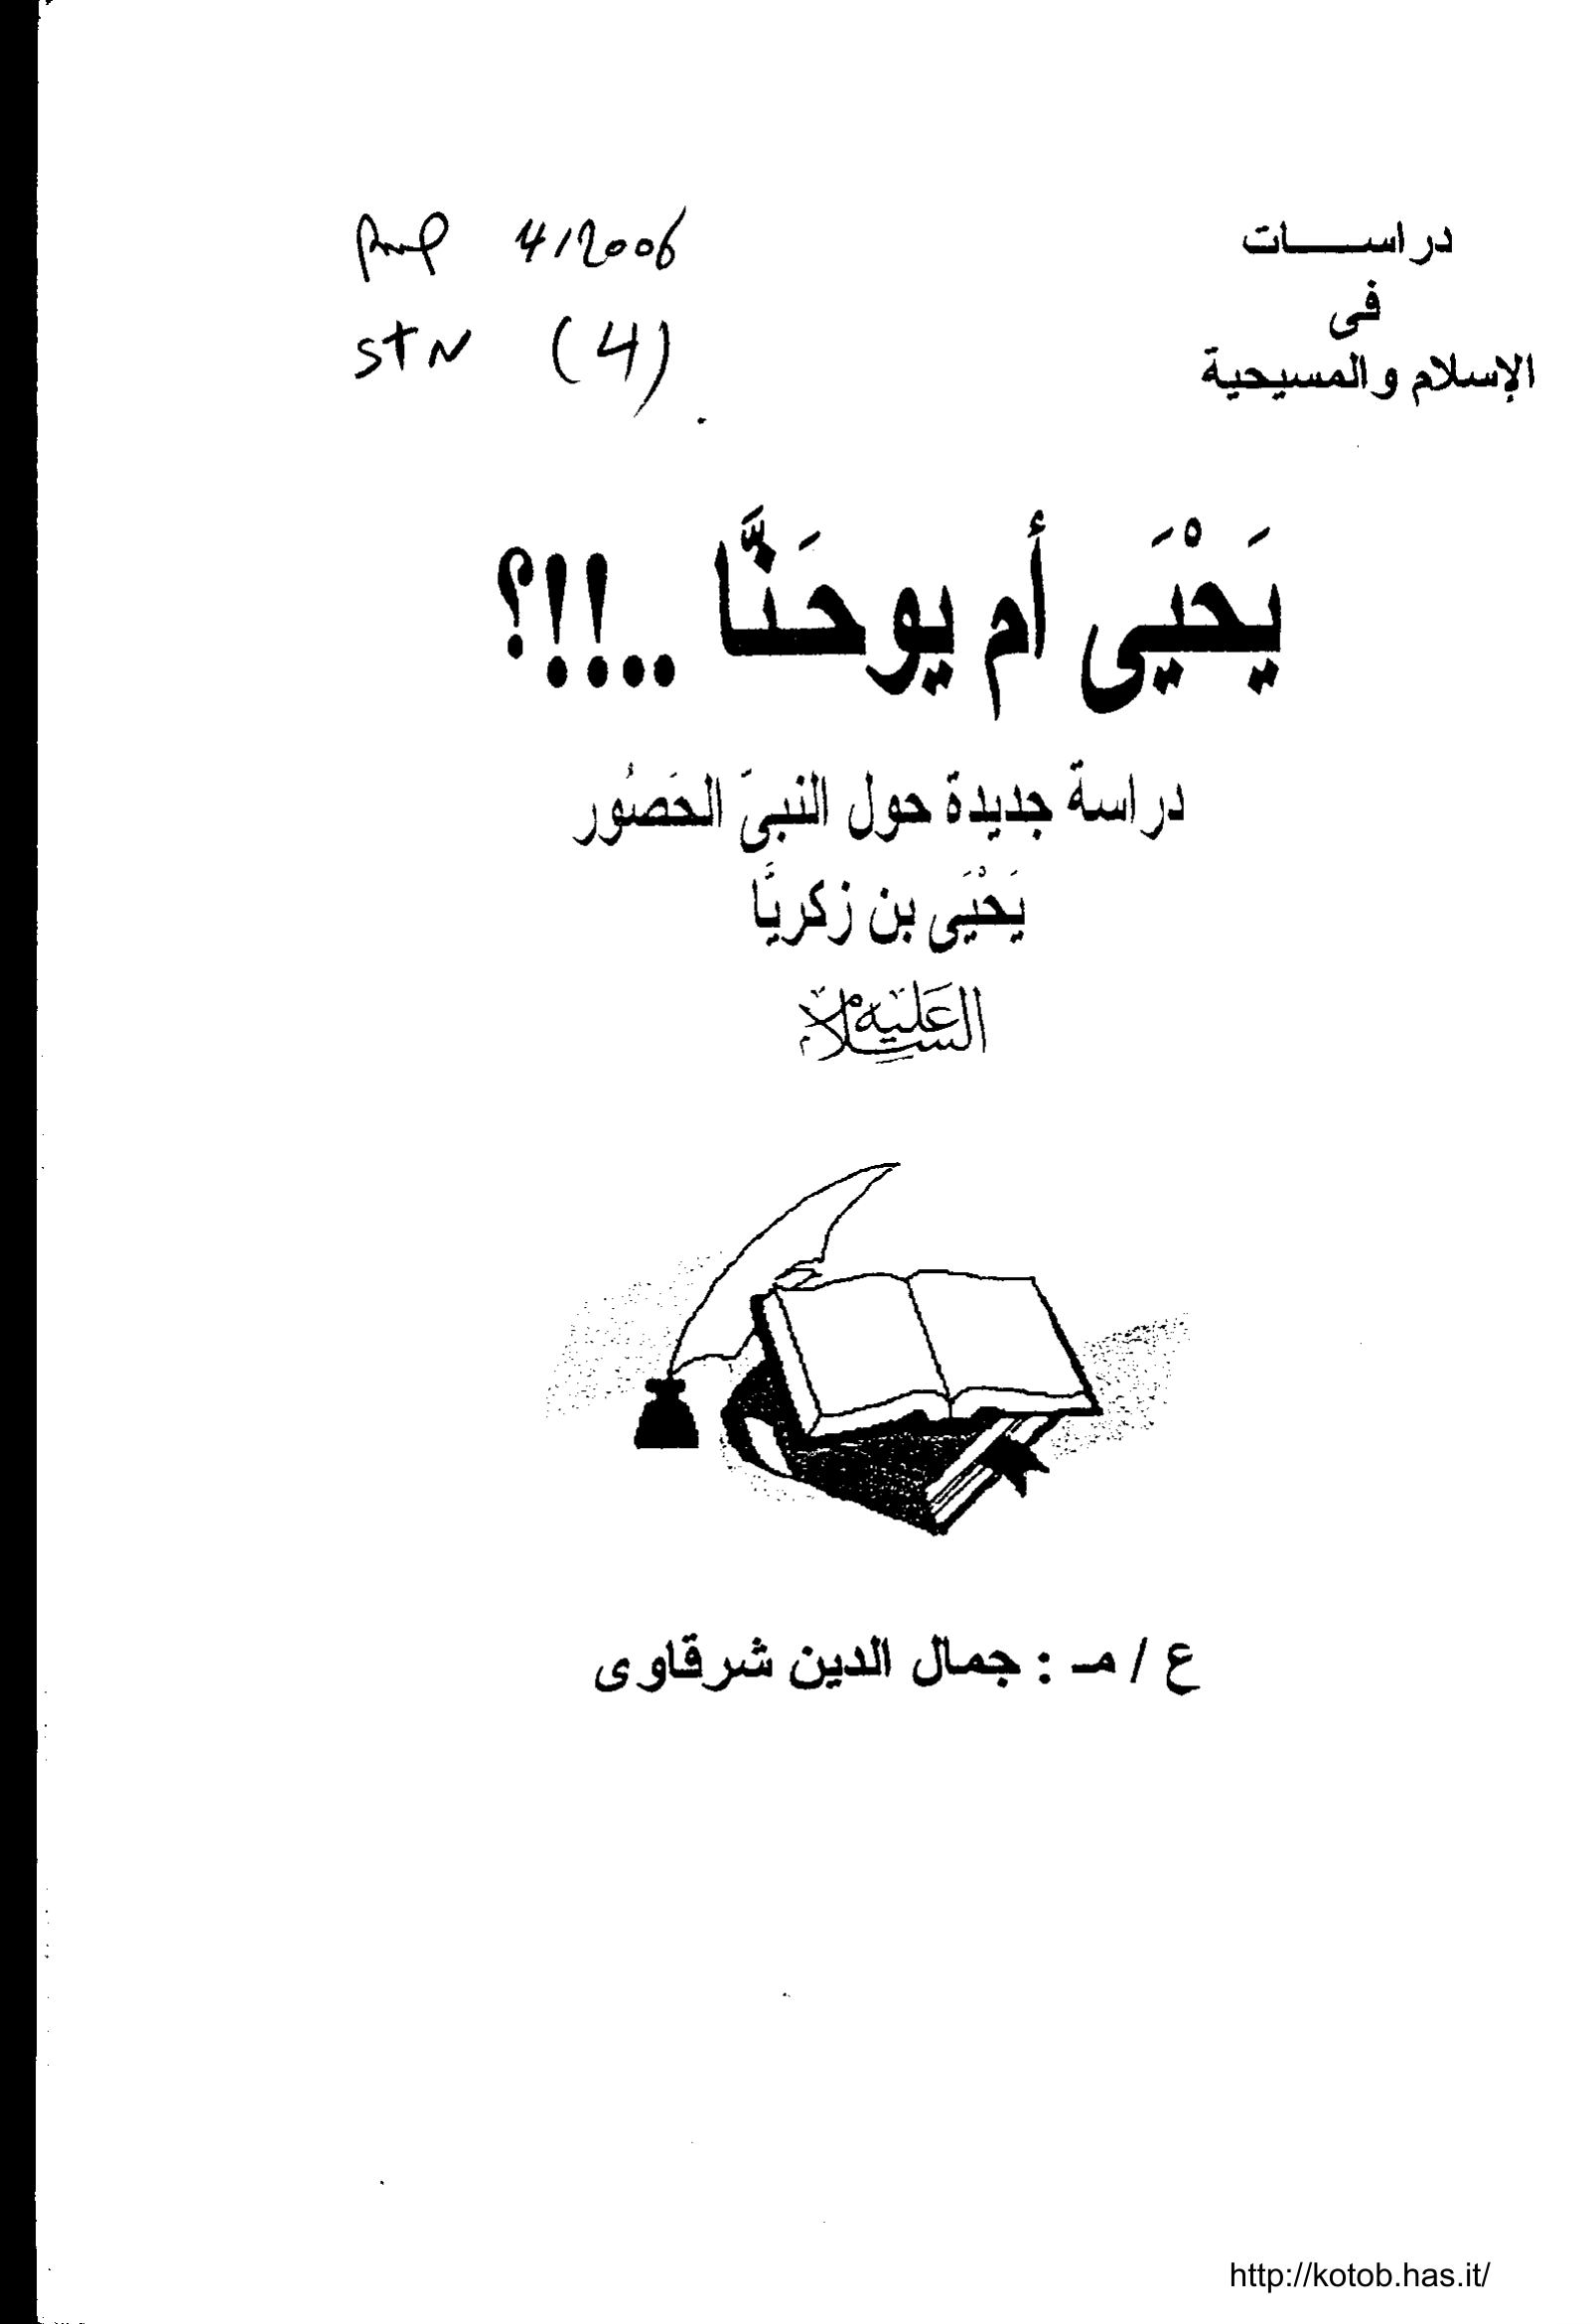 دراســـات
فى
الإسلام والمسيحية
4/2006
STN (4)
يَحْيَى أم يوحَنَّا ..!!؟
دراسة جديدة حول النبىّ الحَصُور
يَحْيَى بن زكريَّا
عَلَيْهِ السَّلام
ع / مـ : جمال الدين شرقاوى
http://kotob.has.it/